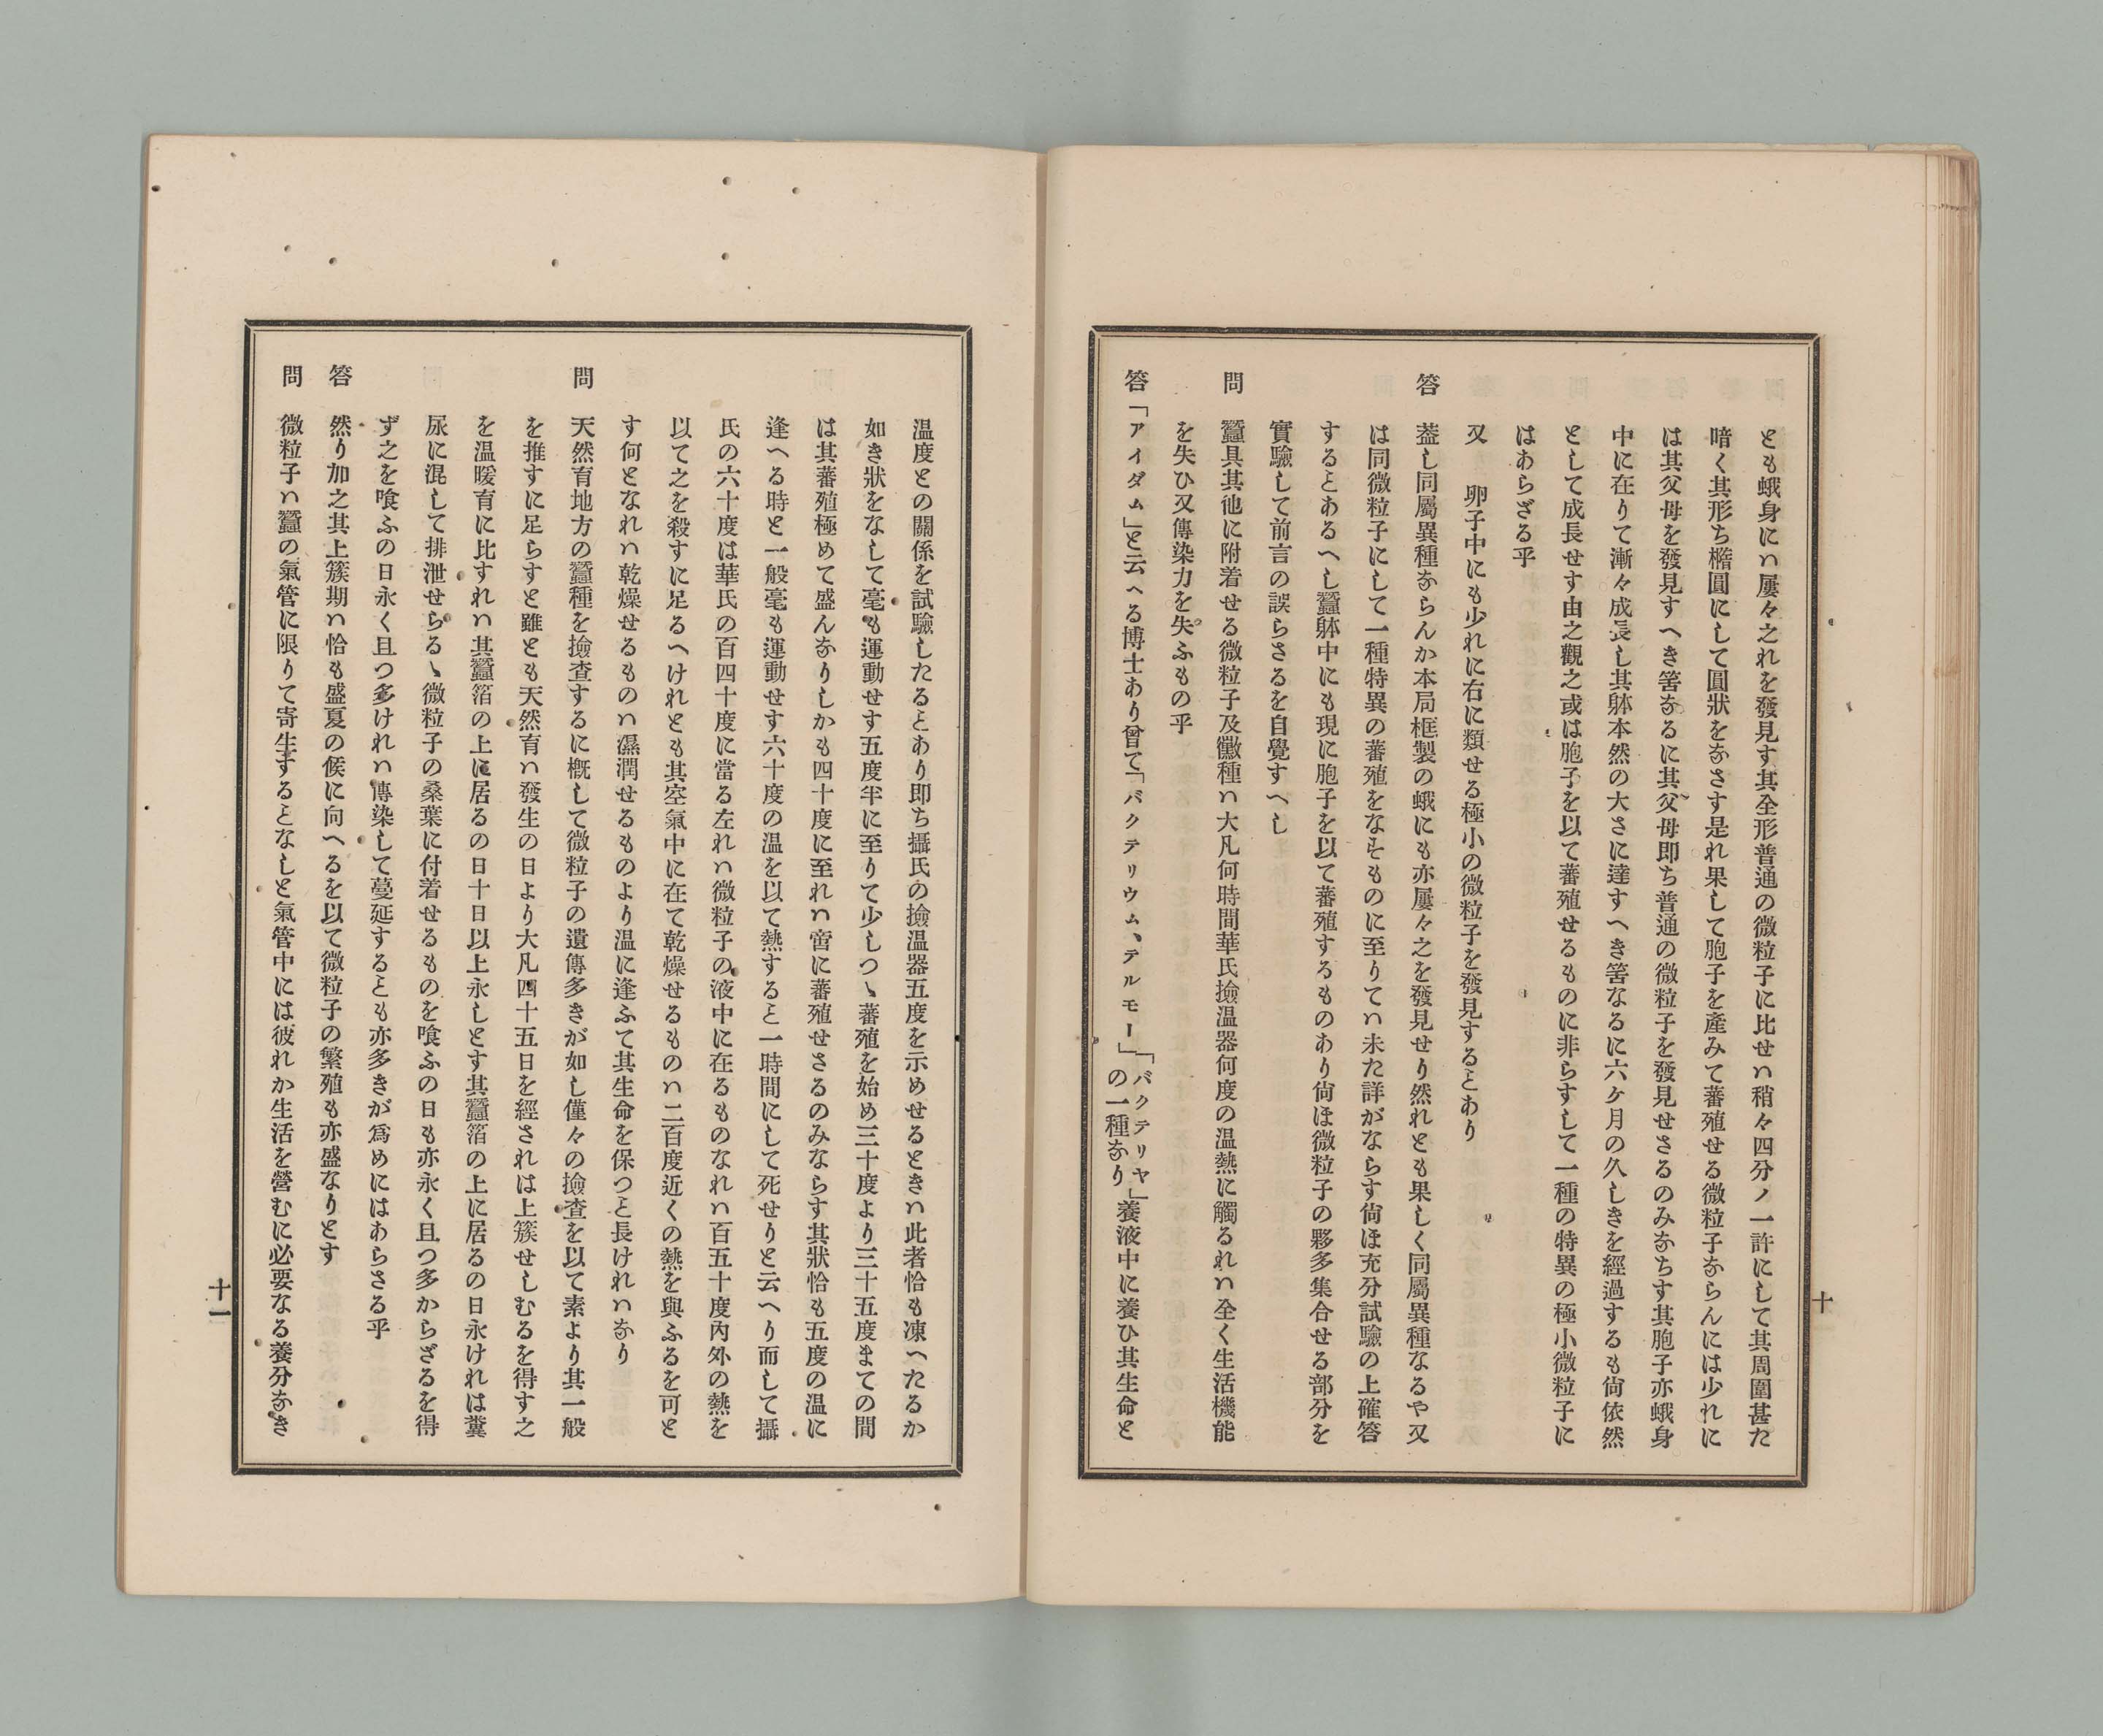 とも蛾身にハ屢々之れを發見す其全形普通の微粒子に比せハ稍々四分ノ一許にして其周圍甚た
暗く其形ち橢圓にして圓狀をなさす是れ果して胞子を產みて蕃殖せる微粒子ならんには少れに
は其父母を發見すへき筈なるに其父母即ち普通の微粒子を發見せさるのみならす其胞子亦蛾身
中に在りて漸々成長し其躰本然の大さに達すへき筈なるに六ケ月の久しきを經過するも尙依然
として成長せす由之觀之或は胞子を以て蕃殖せるものに非らすして一種の特異の極小微粒子に
はあらざる乎
又　卵子中にも少れに右に類せる極小の微粒子を發見するとあり
答　葢し同屬異種ならんか本局框製の蛾にも亦屢々之を發見せり然れとも果しく同屬異種なるや又
は同微粒子にして一種特異の蕃殖をなすものに至りてハ未た詳がならす尙ほ充分試驗の上確答
するとあるへし蠶躰中にも現に胞子を以て蕃殖するものあり尙ほ微粒子の夥多集合せる部分を
實驗して前言の誤らさるを自覺すへし
問　蠶具其他に附着せる微粒子及黴種ハ大凡何時間華氏撿温器何度の温熱に觸るれハ全く生活機能
を失ひ又傳染力を失ふもの乎
答　「アイダム」と云へる博士あり曾て「バクテリウム、テルモー」「バクテリヤ」の一種なり養液中に養ひ其生命と
十
温度との關係を試驗したるとあり即ち攝氏の撿温器五度を示めせるときハ此者恰も凍へたるか
如き狀をなして毫も運動せす五度半に至りて少しつゝ蕃殖を始め三十度より三十五度まての間
は其蕃殖極めて盛んなりしかも四十度に至れハ啻に蕃殖せさるのみならす其狀恰も五度の温に
逢へる時と一般毫も運動せす六十度の温を以て熱すると一時間にして死せりと云へり而して攝
氏の六十度は華氏の百四十度に當る左れハ微粒子の液中に在るものなれハ百五十度內外の熱を
以て之を殺すに足るへけれとも其空氣中に在て乾燥せるものハ二百度近くの熱を與ふるを可と
す何となれハ乾燥せるものハ濕潤せるものより温に逢ふて其生命を保つと長けれハなり
問　天然育地方の蠶種を撿査するに槪して微粒子の遺傳多きが如し僅々の撿査を以て素より其一般
を推すに足らすと雖とも天然育ハ發生の日より大凡四十五日を經されは上簇せしむるを得す之
を温暖育に比すれハ其蠶箔の上に居るの日十日以上永しとす其蠶箔の上に居るの日永けれは糞
尿に混して排泄せらるゝ微粒子の桑葉に付着せるものを喰ふの日も亦永く且つ多からざるを得
ず之を喰ふの日永く且つ多けれハ傳染して蔓延するとも亦多きが爲めにはあらさる乎
答　然り加之其上簇期ハ恰も盛夏の候に向へるを以て微粒子の繁殖も亦盛なりとす
問　微粒子ハ蠶の氣管に限りて寄生するとなしと氣管中には彼れか生活を營むに必要なる養分なき
十一